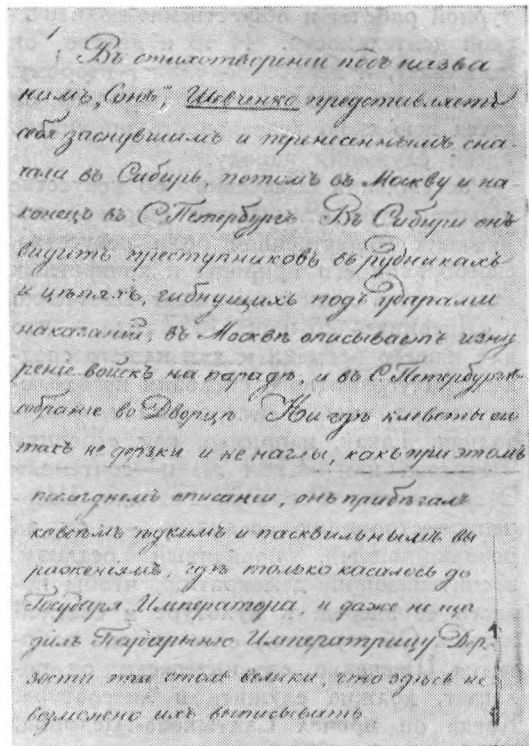 Въ стихотвореніи подъ назва
ніемъ „Сонъ", Шевченко представляетъ
себя заснувшимъ и перенесеннымъ сна-
чала въ Сибирь, потомъ въ Москву и на
конецъ въ С.Петербургъ. Въ Сибири онъ
видитъ преступниковъ въ рудникахъ
и цѣпяхъ, гибнущихъ подъ ударами
наказаній, въ Москвѣ описываетъ изну
реніе войскъ на парадѣ, и въ С.Петербургѣ
собраніе во Дворцѣ. Нигдѣ клеветы его
такъ не дерзки и не наглы, какъ при этомъ
послѣднемъ описаніи, онъ прибѣгалъ
ко всѣмъ рѣзкимъ и пасквильнымъ вы
раженіямъ, гдѣ только касалось до
Государя Императора, и даже не ща
дилъ Государыню Императрицу. Дер-
зости эти столь велики, что здѣсь не
возможно ихъ выписывать